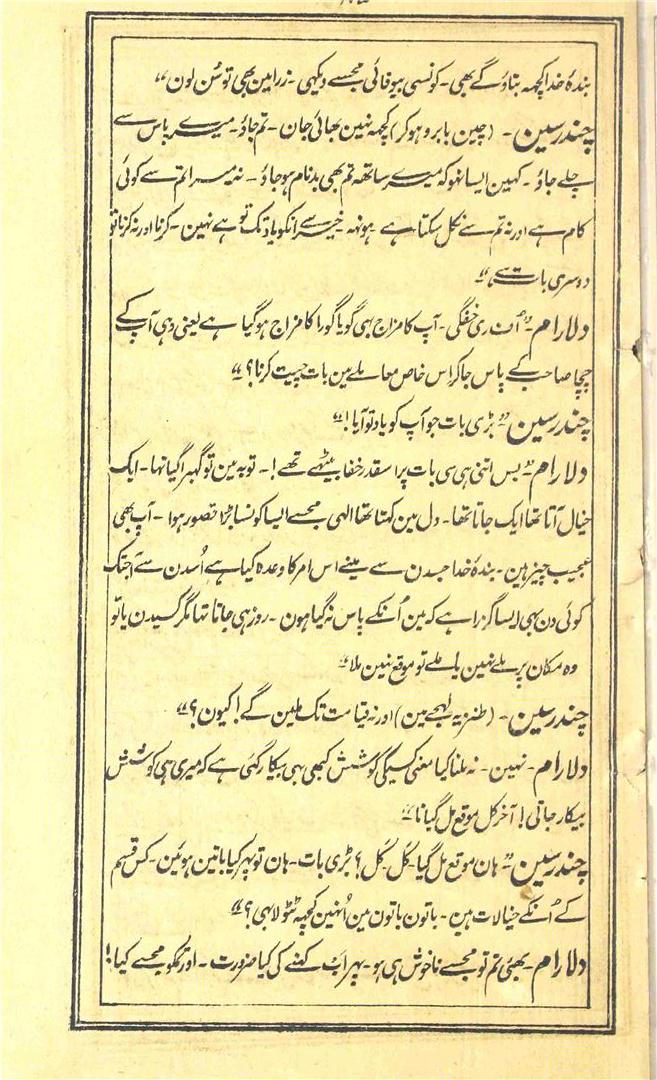 بندۂ خدا کچھہ بتاؤ گے بھی۔ کونسی بیوفائی مجسے دیکھی۔ زرا مین بھی تو سُن لون"
چندرسین۔ (چین بابرو ہو کر) کچھہ نہین بھائی جان۔ تم جاؤ۔ میرے پاس سے
چلے جاؤ۔ کہین ایسا نہو کہ میرے ساتھہ تم بھی بدنام ہو جاؤ۔ نہ میرا تم سے کوئی
کام ہے اور نہ تم سے نکل سکتا ہے۔ ہونہہ۔ خیر سے انکو یاد تک تو ہے نہین۔ کرنا اور نہ کرنا تو
دوسری بات ہے"
دلارام۔ "اُف ری خفگی۔ آپ کا مزاج بھی گویا گورا کا مزاج ہو گیا ہے یعنی وہی آپ کے
چچا صاحب کے پاس جا کر اس خاص معاملے مین بات چیت کرنا؟"
چندرسین "بڑی بات جو آپ کو یاد تو آیا!"
دلارام۔ "بس اتنی ہی سی بات پر اسقدر خفا بیٹھے تھے!۔ توبہ مین تو گھبرا گیا تھا۔ ایک
خیال آتا تھا ایک جاتا تھا۔ دل مین کہتا تھا الہی مجسے ایسا کونسا بڑا قصور ہوا۔ آپ بھی
عجیب چیز ہین۔ بندۂ خدا جسدن سے مینے اس امر کا وعدہ کیا ہے اُسدن سے آجتک
کوئی دن بھی ایسا گزرا ہے کہ مین اُنکے پاس نہ گیا ہون۔ روز ہی جاتا تھا مگر کسیدن یا تو
وہ مکان پر ملے نہین یا ملے تو موقع نہین ملا"
چندرسین۔ (طنزیہ لہجے مین) اور نہ قیامت تک ملین گے! کیون؟"
دلارام۔ نہین۔ نہ ملنا کیا معنی کسیکی کوشش کبھی بھی بیکار گئی ہے کہ میری ہی کوشش
بیکار جاتی! آخر کل موقع مل گیا نا"
چندرسین۔ "ہان موقع مل گیا۔ کل۔ کل؟ بڑی بات۔ ہان تو پھر کیا باتین ہوئین۔ کس قسم
کے اُنکے خیالات ہین۔ باتون باتون مین اُنہین کچھہ ٹٹولا بھی؟"
دلارام۔ بھئی تم تو مجسے ناخوش ہی ہو۔ پھر اب کہنے کی کیا ضرورت۔ اور تمکو مجسے کیا!